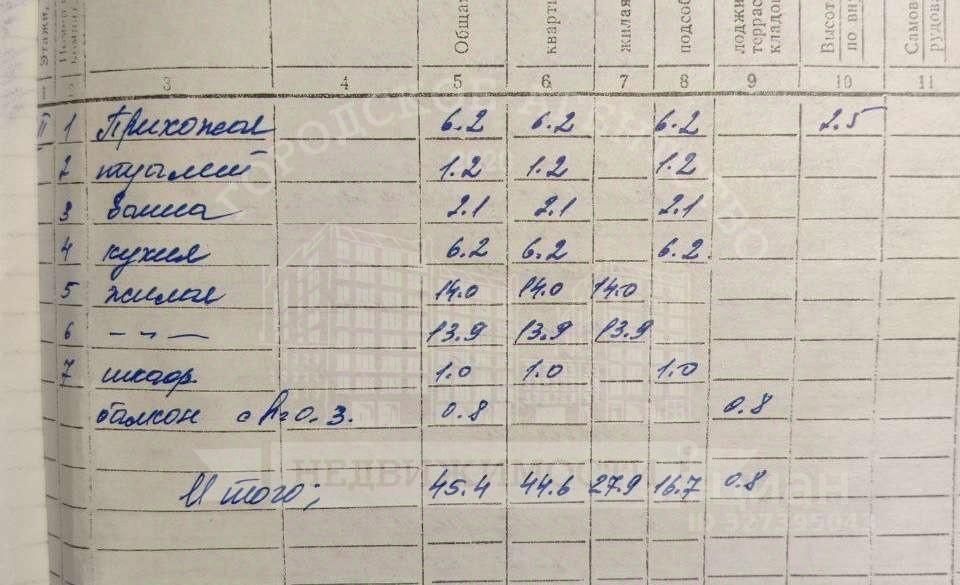 Этажи,
Общая
кварти
жилая
подсоб
лоджи
террас
кладов
Высот
по вн
Самов
рудова
3 4 5 6 7 8 9 10 11
П 1 Прихожая 6.2 6.2 6.2 2.5
2 туалет 1.2 1.2 1.2
3 ванна 2.1 2.1 2.1
4 кухня 6.2 6.2 6.2
5 жилая 14.0 14.0 14.0
6 -"- 13.9 13.9 13.9
7 шкаф. 1.0 1.0 1.0
балкон с k=0.3. 0.8 0.8
Итого; 45.4 44.6 27.9 16.7 0.8
НЕДВИЖИМОСТЬ
циан